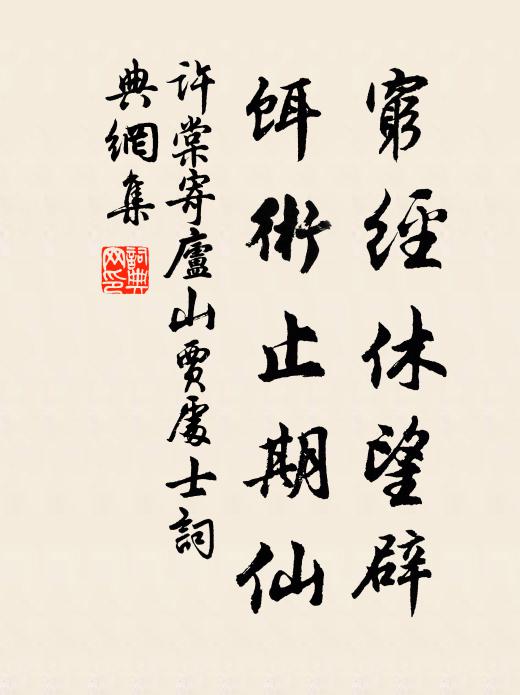 窮經休望辟
餌術止期仙
許棠寄廬山賈處士詞
典網集
詞典網印